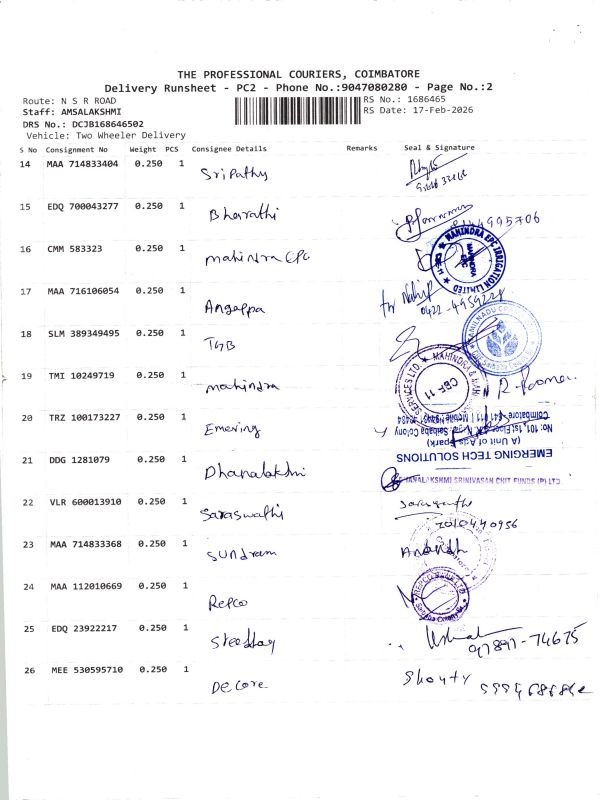 THE PROFESSIONAL COURIERS, COIMBATORE
Delivery Runsheet - PC2 - Phone No.:9047080280 - Page No.:2
Route: N S R ROAD
RS No.: 1686465
Staff: AMSALAKSHMI
RS Date: 17-Feb-2026
DRS No.: DCJB168646502
Vehicle: Two Wheeler Delivery
S No Consignment No Weight PCS Consignee Details Remarks Seal & Signature
14 MAA 714833404 0.250 1 Sripathy
15 EDQ 700043277 0.250 1 Bharathi
16 CMM 583323 0.250 1 mahindra EPC
MAHINDRA EPC IRRIGATION LIMITED
17 MAA 716106054 0.250 1 Angappa
18 SLM 389349495 0.250 1 TGB
19 TMI 10249719 0.250 1 mahindra
SERVICES LTD. MAHINDRA &
CBF-11
20 TRZ 100173227 0.250 1 Emering
EMERGING TECH SOLUTIONS
No: 101, 1st Floor, Saibaba Colony
21 DDG 1281079 0.250 1 Dhanalakshmi
DHANALAKSHMI SRINIVASAN CHIT FUNDS (P) LTD.
22 VLR 600013910 0.250 1 Saraswathi
7010440956
23 MAA 714833368 0.250 1 Sundram Anandh
24 MAA 112010669 0.250 1 Repco
REPCO BANK LTD
25 EDQ 23922217 0.250 1
97897-74675
26 MEE 530595710 0.250 1 Decore